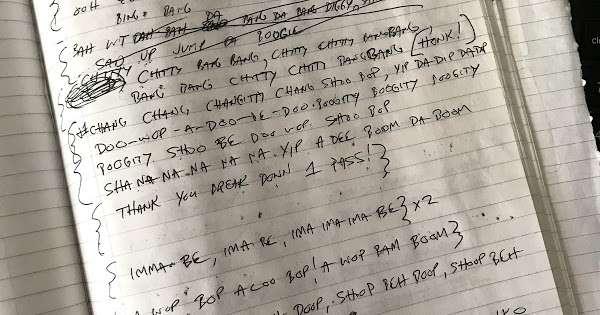 BOH
BING. BANG
BAH WIT DAH BAH DA BANG DA BANG DIGGY,
SAID UP JUMP DA BOOGIE
CHITTY BANG BANG, CHITTY CHITTY BANG BANG
BANG BANG CHITTY CHITTY BANG BANG (HONK!)
CHANG CHANG, CHANGITTY CHANG SHOO BOP, YIP DA DIP DA DIP
DOO-WOP-A-DOO-BE-DOO. BOOGITY BOOGITY BOOGITY
BOOGITY SHOO BE DOO WOP SHOO BOP
SHA NA NA NA NA NA YIP A DEE BOOM DA BOOM
THANK YOU BREAK DOWN 1 PASS!}
{ IMMA-BE, IMA BE, IMA IMA IMA BE } x2
A WOP BOP A LOO BOP! A WOP BAM BOOM}
DOOP, SHOOP BEH DOOP, SHOOP BEH